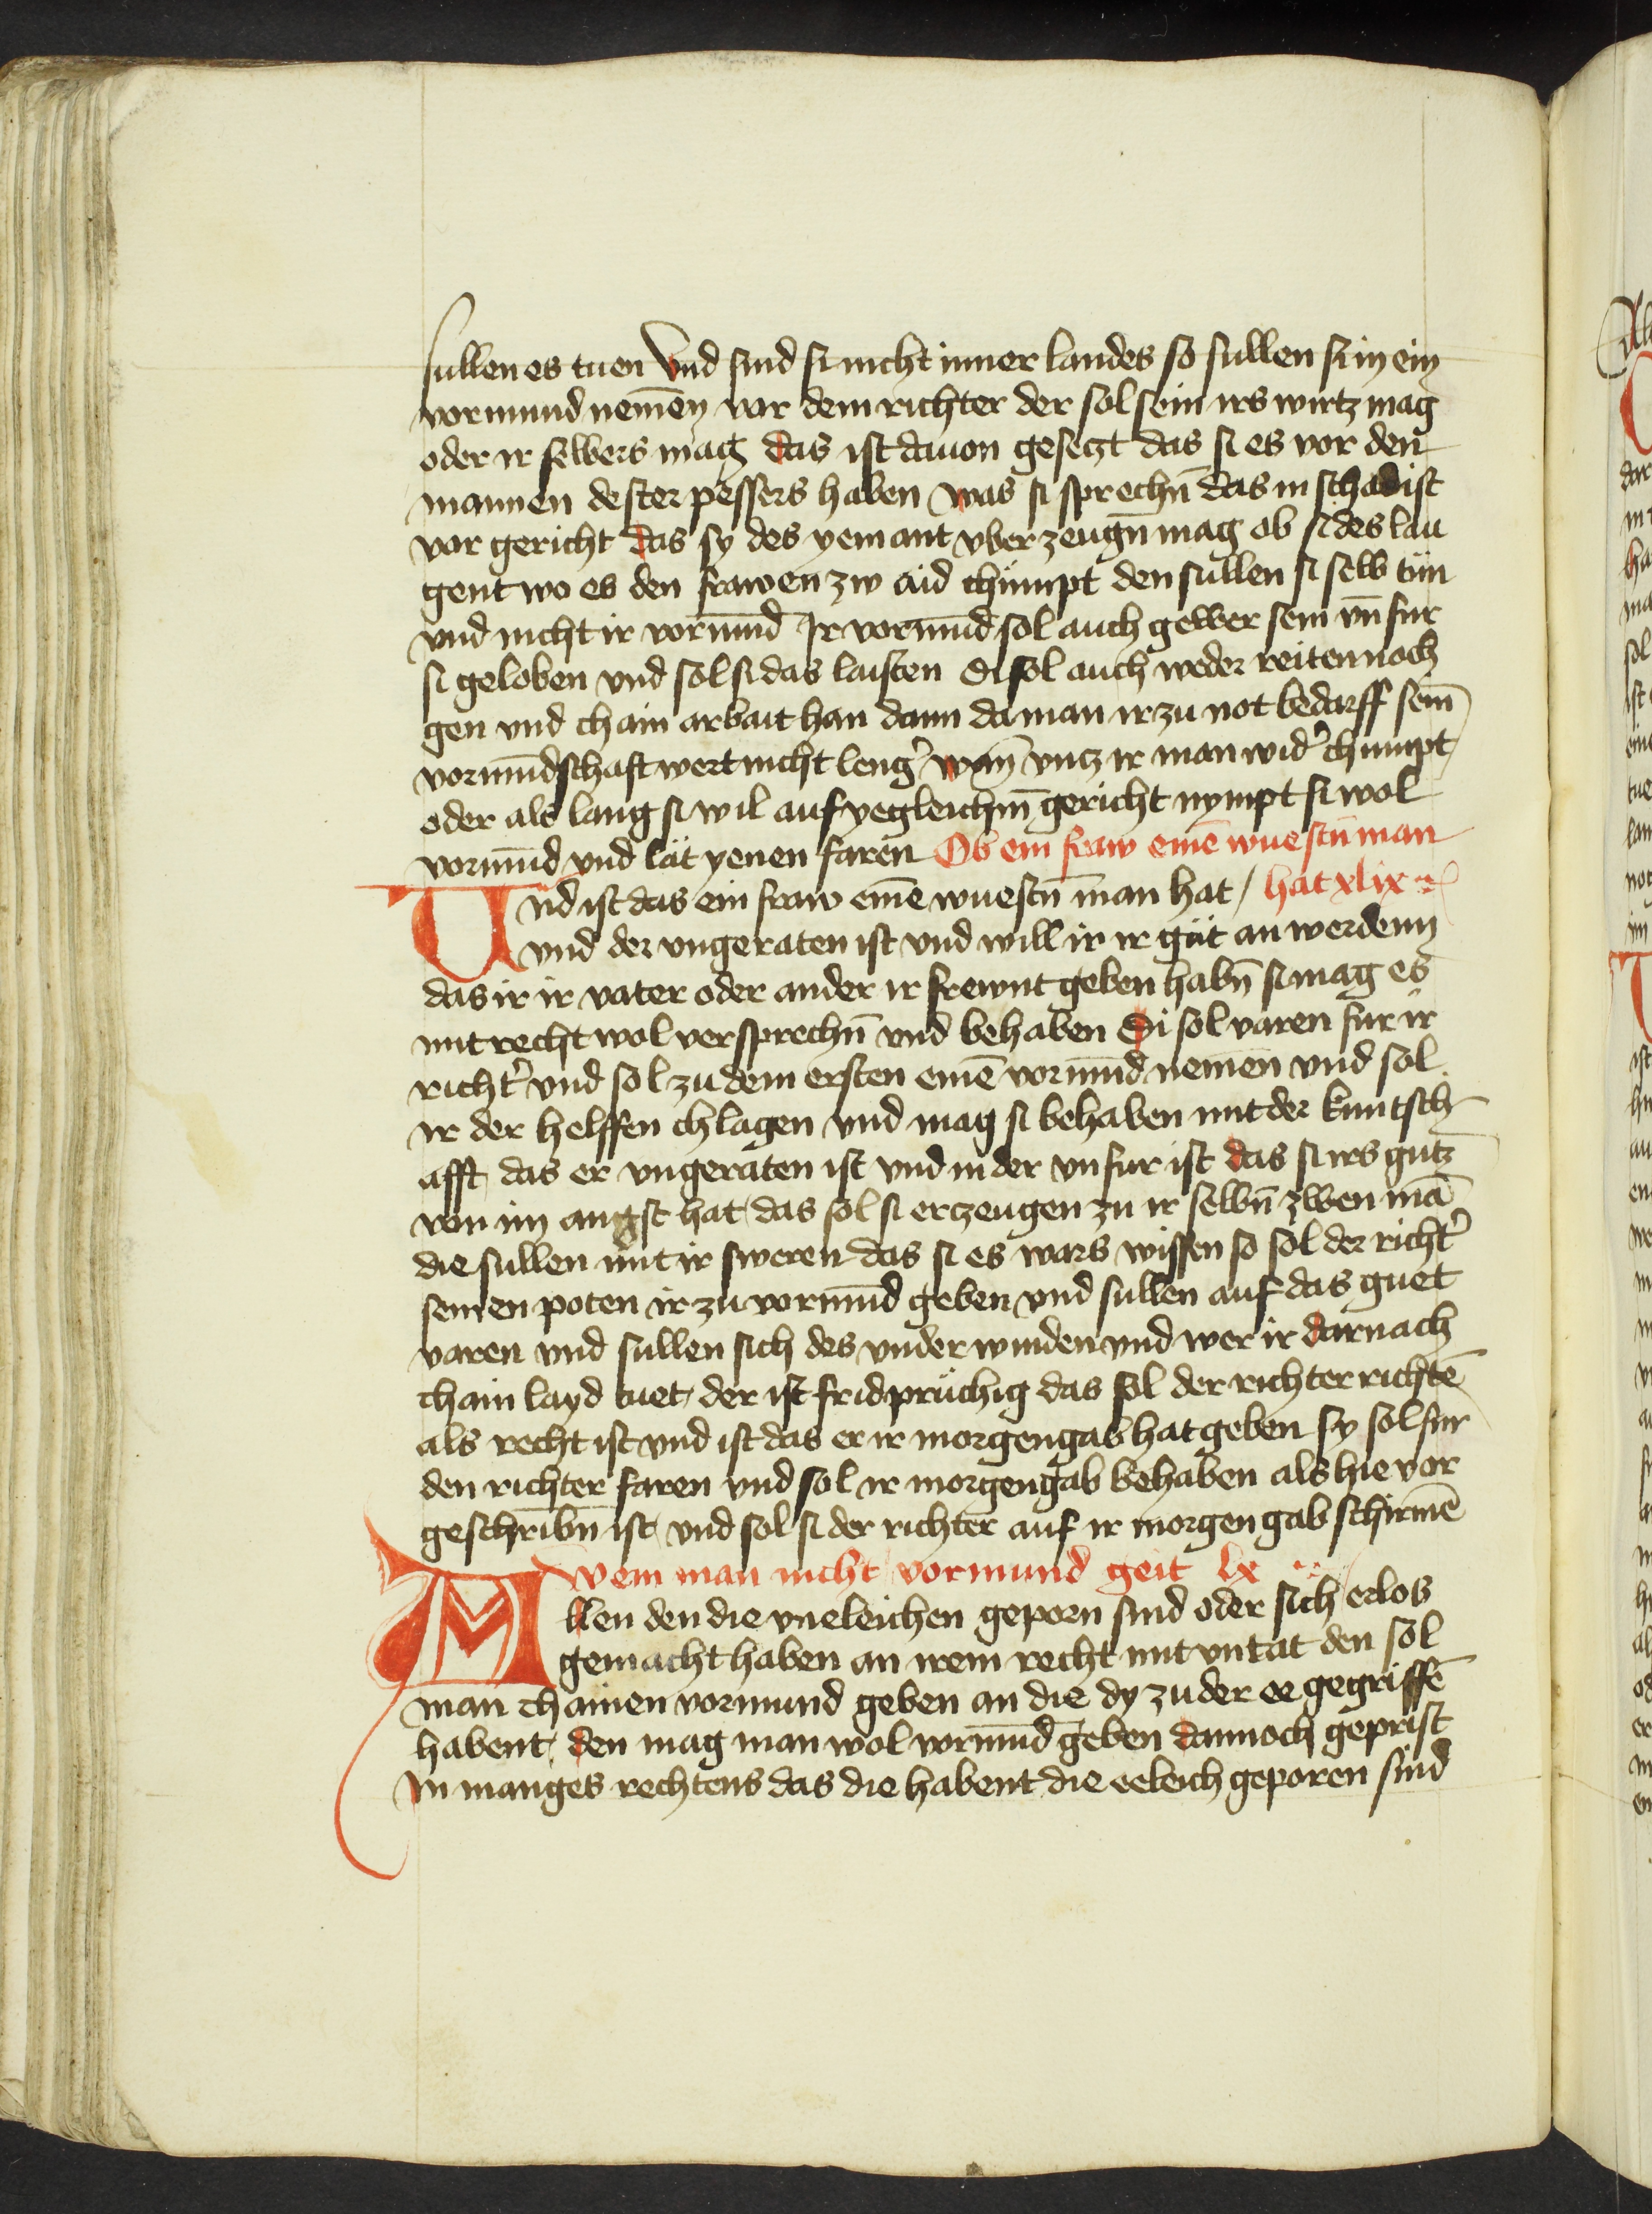 sullen es tuen Vnd sind si nicht inner landes so sullen si in ein
vormund nemen̄ vor dem richter der sol sein irs wirtz mag
oder ir selbers mag das ist dauon gesetzt das si es vor den
mannen dester pessers haben was si sprechn̄ das in schad ist
vor gericht das sy des yemant vber zeugn̄ mag ob si des lau
gent wo es den frawen zw aid chümpt den sullen si selb tün
vnd nicht ir vormūd Ir vormūd sol auch gewer sein vn̄ fur
si geloben vnd sol si das laisten Di sol auch weder reiten noch
gen vnd chain arbait han dann da man ir zu not bedarff sein
vormūdschaft wert nicht leng̛ wan̄ vntz ir man wid̛ chumpt
oder als lang si wil auf yegleichm̄ gericht nympt si wol
vormūd vnd lät yenen faren Ob ein fraw einē wuestn̄ man
Und ist das ein fraw einē wuestn̄ man hat / hat xlix
vnd der vngeraten ist vnd will ir ir güt an werdenn
das ir ir vater oder ander ir frewnt geben habn̄ si mag es
mit recht wol versprechn̄ vnd behaben Di sol varen fur ir
richt̛ vnd sol zu dem ersten einē vormūd nemen vnd sol
ir der helffen chlagen vnd mag si behaben mit der kuntsch
afft das er vngeraten ist vnd in der vnfur ist das si irs gutz
von im angst hat das sol si erzeugen zu ir selbn̄ zwen mā
die sullen mit ir sweren das si es wars wissen so sol der richt̛
seinen poten ir zu vormūd geben vnd sullen auf das guet
varen vnd sullen sich des vnder winden vnd wer ir darnach
chain layd tuet der ist fridprüchig das sol der richter richtē
als recht ist vnd ist das er ir morgengab hat geben sy sol fur
den richter faren vnd sol ir morgengab behaben als hie vor
geschribn̄ ist vnd sol si der richter auf ir morgen gab schirmē
Wem man nicht vormund geit lx
Allen den die vneleichen geporn sind oder sich erlos
gemacht haben an irem recht mit vntat den sol
man chainen vormund geben an die dy zu der ee gegriffē
habent den mag man wol vormūd geben dannoch geprist
in manges rechtens das die habent die eeleich geporen sind